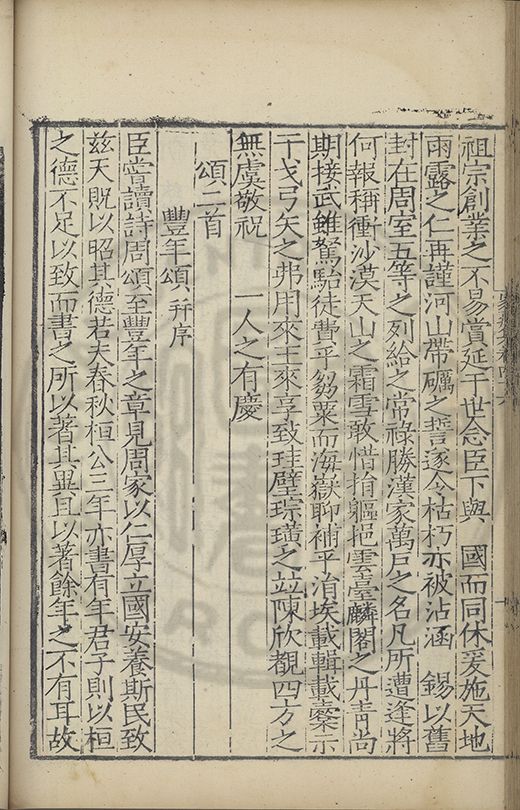 祖宗創業之不易賞延于世念臣下與　國而同休爰施天地
雨露之仁再謹河山帶礪之誓遂令枯朽亦被沾涵　錫以舊
封在周室五等之列給之常祿勝漢家萬戸之名凡所遭逢將
何報稱衝沙漠天山之霜雪敢惜捐軀挹雲臺麟閣之丹青尚
期接武雖駑駘徒費乎芻粟而海嶽聊補乎涓埃載輯載櫜示
干戈弓矢之弗用來王來享致珪璧琮璜之竝陳欣觀四方之
無虞敬祝　一人之有慶
頌二首
豐年頌 并序
臣嘗讀詩周頌至豐年之章見周家以仁厚立國安養斯民致
兹天貺以昭其德若夫春秋桓公三年亦書有年君子則以桓
之德不足以致而書之所以著其異且以著餘年之不有耳故